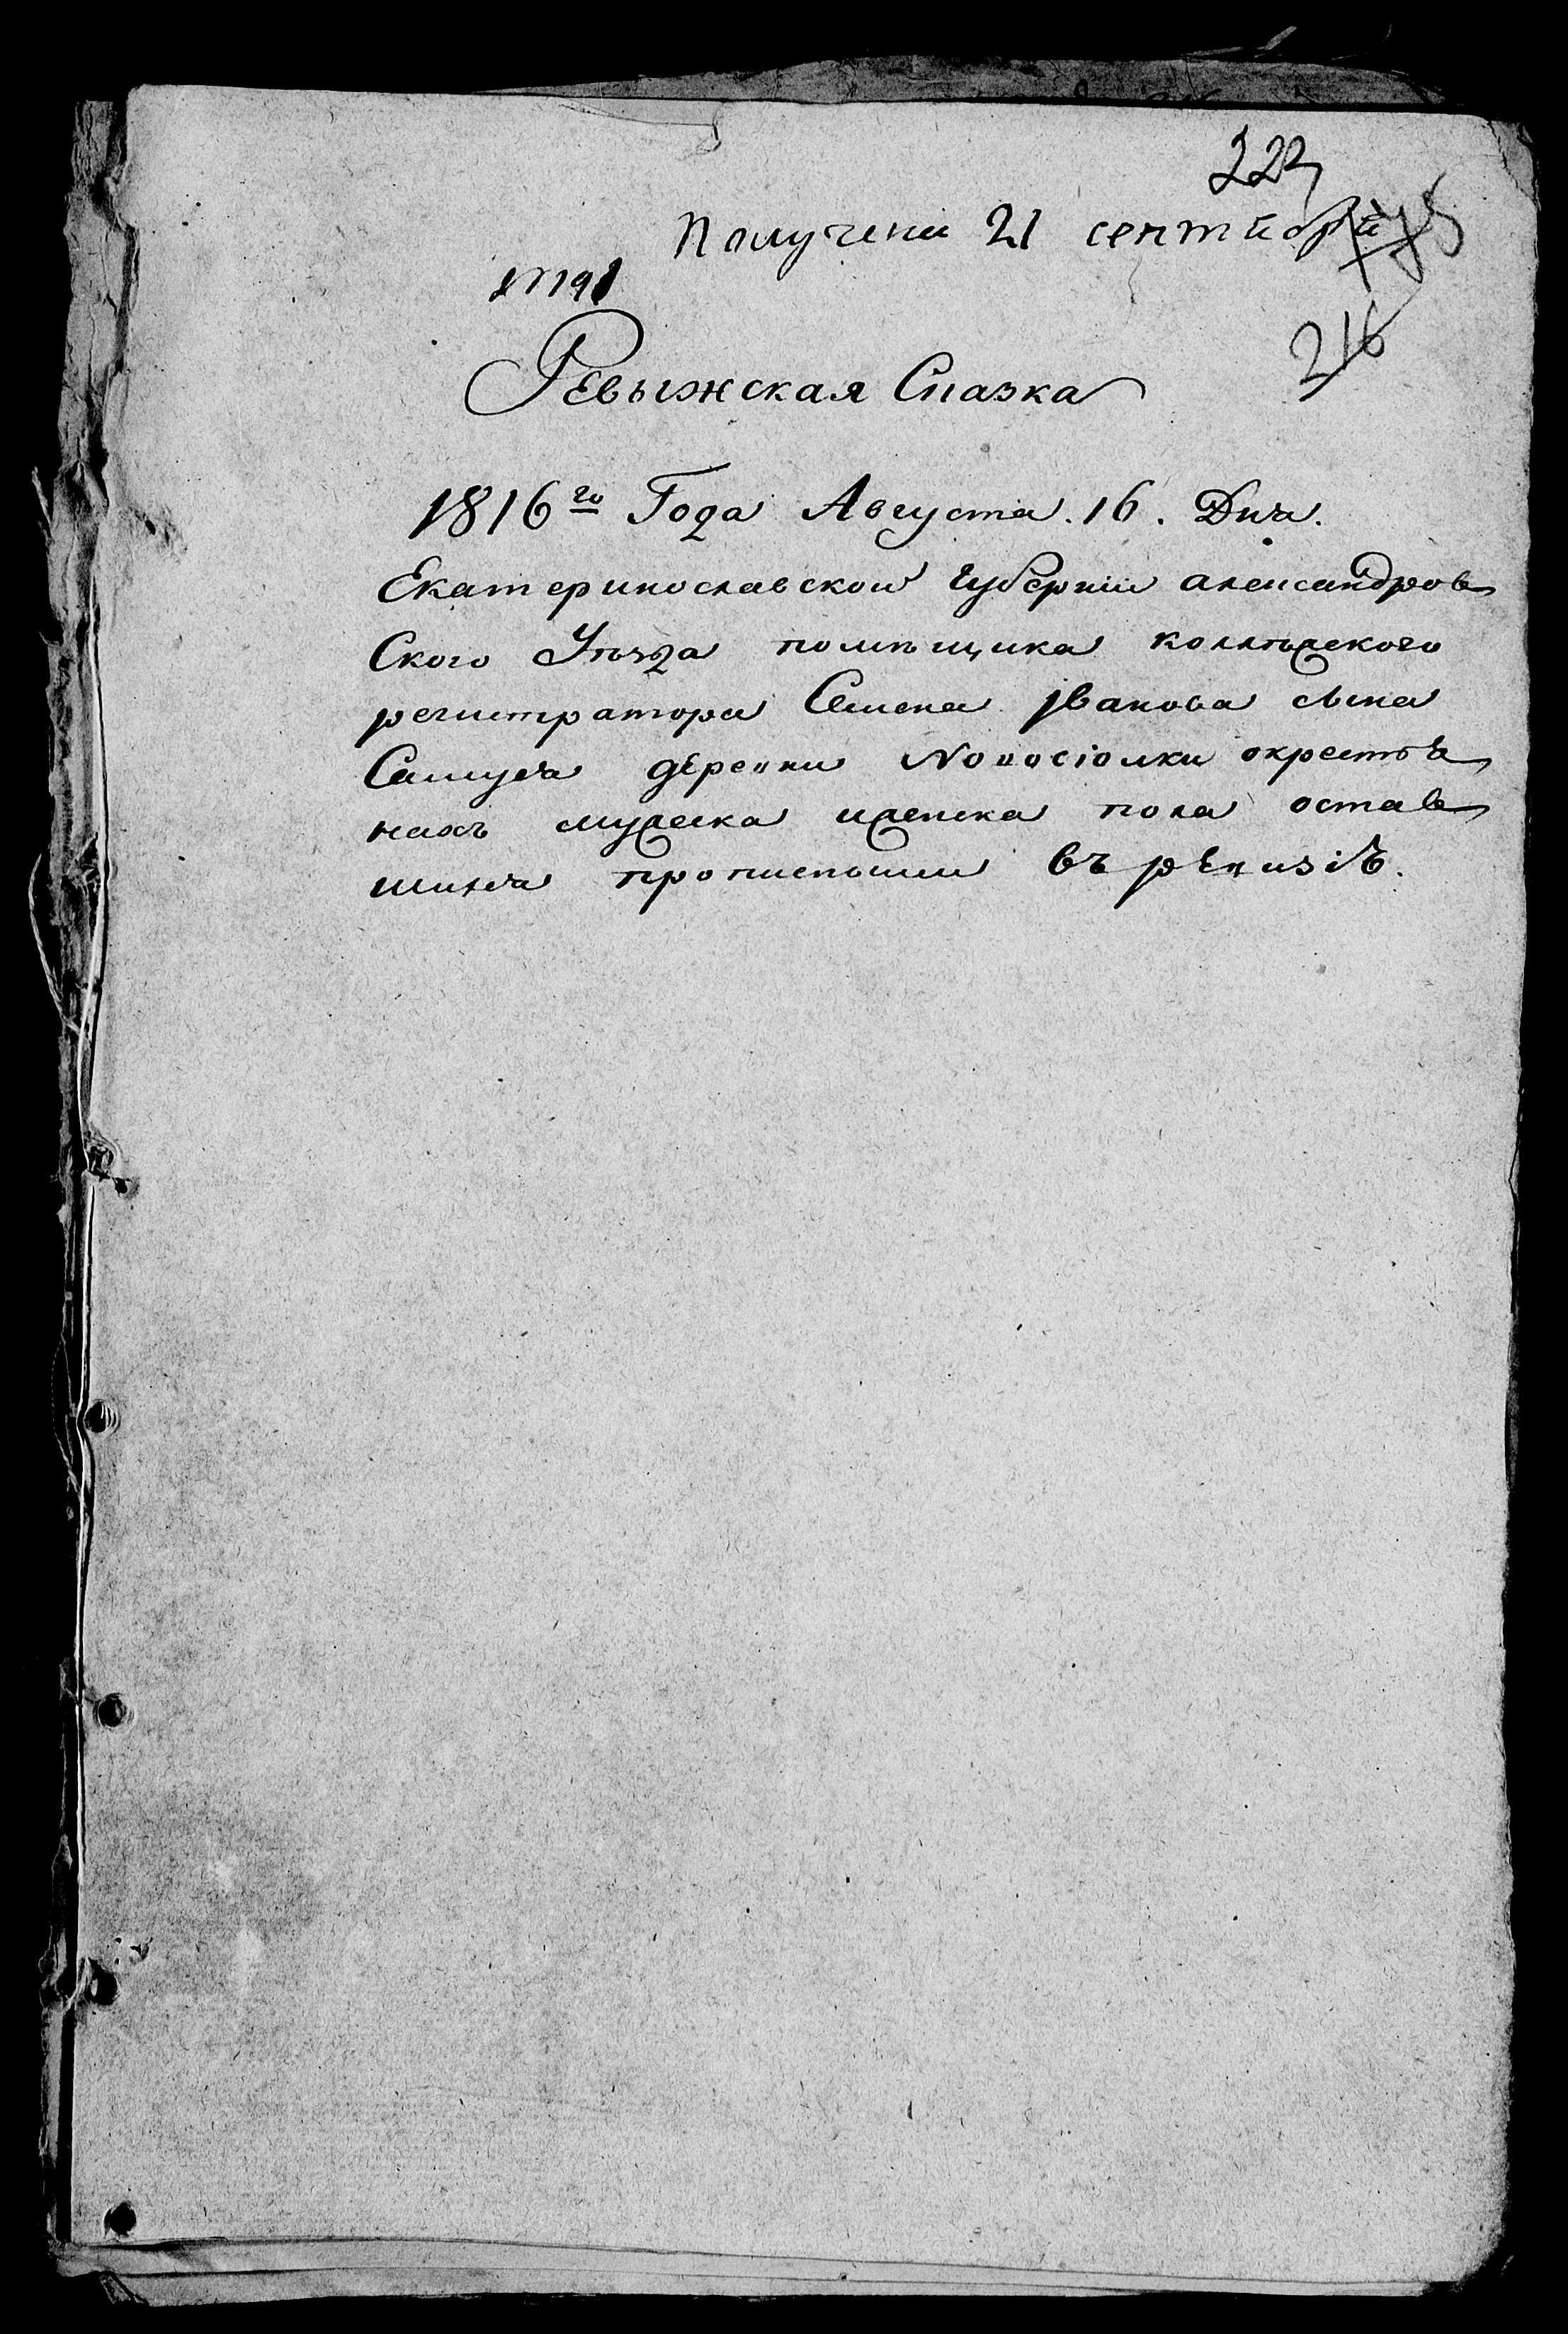 223
Получена 21 сентября
№ 191
216
Ревыжская Сказка
1816го Года Августа. 16. Дня.
Екатеринославской губернии александров
Ского Уѣзда помѣщика коллѣжского
регистратора Семена Иванова сына
деревни Новосіолки о крестья
нахъ мужеска иженска пола остав
шихся въ ревизіѣ.